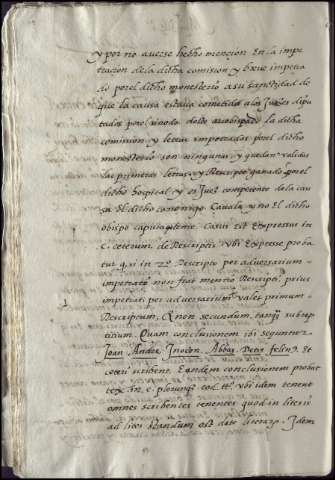 y por no averse hecho mencion En la impe
tracion de la dicha comision y breve impetra
do por el dicho monesterio a su santidad de
que la causa estava cometida a los Jueçes dipu
tados por el sinodo deste arçobispado la dicha
comision y letras impetradas por el dicho
monesterio son ningunas y quedan validas
las primeras letras y Rescripto ganado por el
dicho hospital y es Juez competente de la cau
sa el dicho canonigo Cavala y no El dicho
obispo Casus est Expressus in
c. ceterum, de Rescriptis. ubi Expresse proba
tur q. si in 2º Rescripto per adversarium
impetrato non fiat mentio Rescripti prius
impetrati per adversarium valet primum
Rescriptum, & non secundum, tanq. subrep
titium. Quam conclusionem ibi sequuntur
Joan Andre Inocen. Abbas Petr felin9. Et
ceteri scribent. Eandem conclusionem probat
tex. in. c. plerunq. eod. tt. ubi idem tenent
omnes scribentes tenentes quod in literis
ad lites dandum est date literarum. Idem